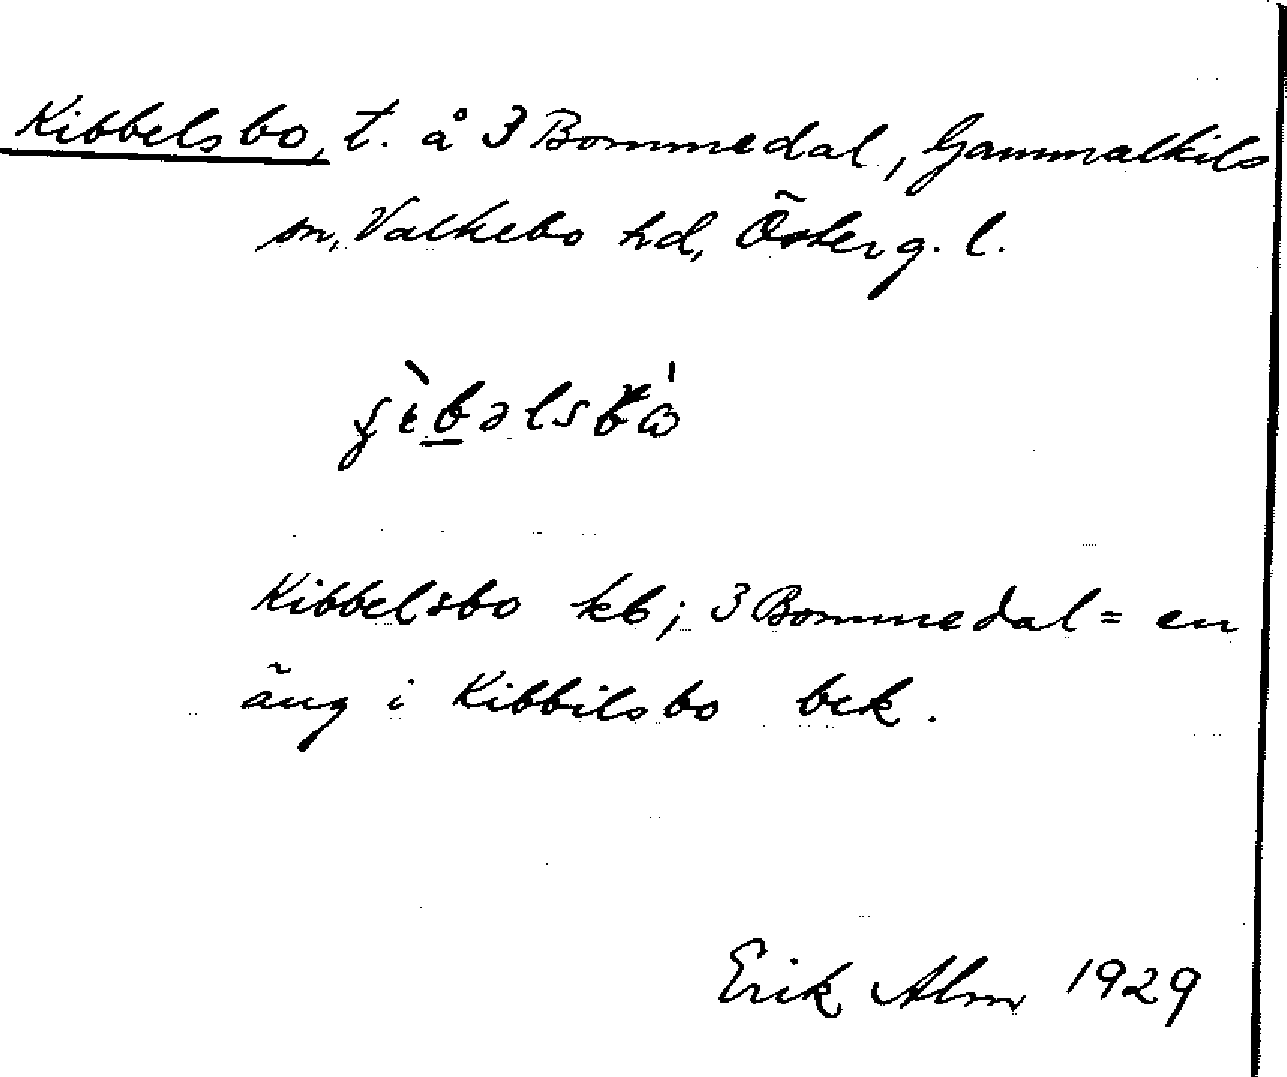 Kibbelsbo, t. å 3 Bommedal, Gammalkils
sn, Valkebo hd, Österg. l.
Kibbelsbo kb; 3 Bommedal = en
äng i Kibbilsbo bek.
Erik Alm 1929